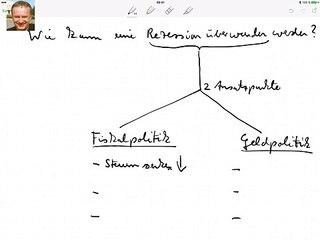 Wie kann eine Rezession überwunden werden?
2 Ansatzpunkte
Fiskalpolitik
Geldpolitik
- Steuern senken ↓
-
-
-
-
-